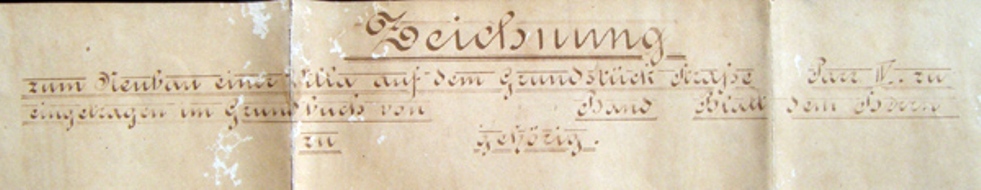 Zeichnung
zum Neubau einer Villa auf dem Grundstück Straße Parz IV. zu
eingetragen im Grundbuch von Band Blatt dem Herrn
zu gehörig.